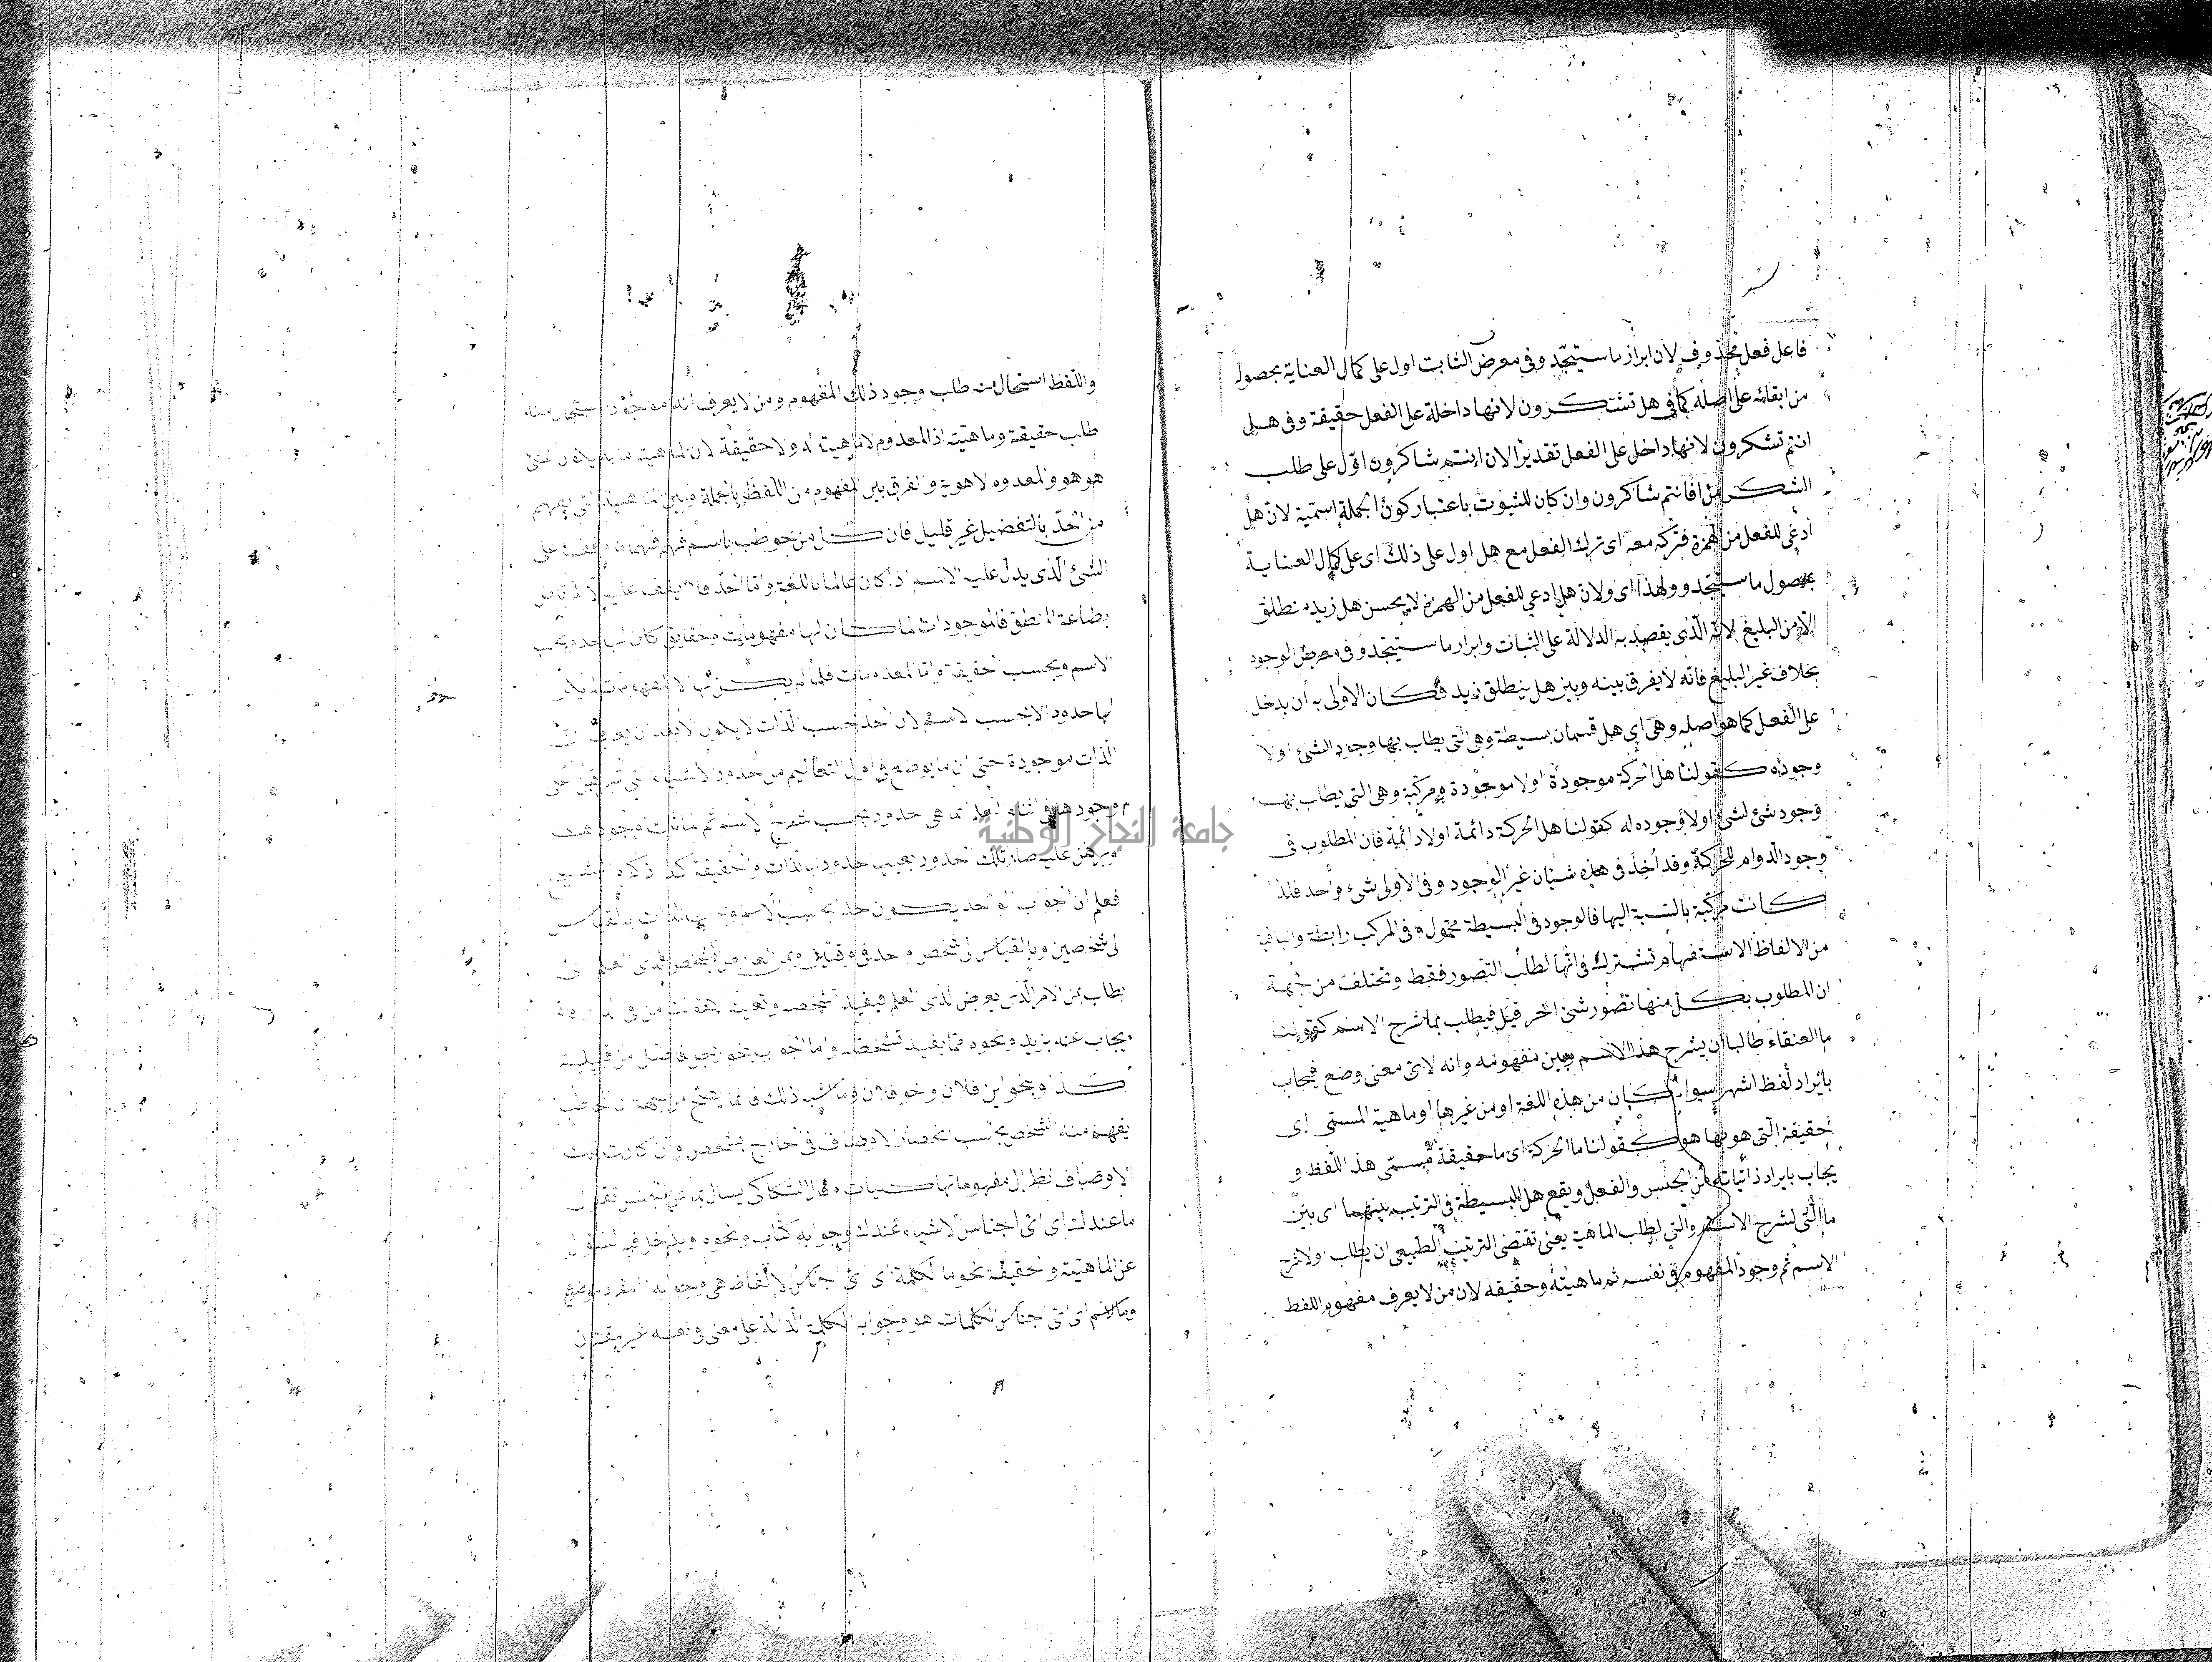 فاعل فعل محذوف لان ابراز ما سيتجدد فى معرض الثابت اول على كمال العناية بحصوله
من ابقائه على اصله كما فى هل تشكرون لانها داخلة على الفعل حقيقة وفى هل
انتم تشكرون لانها داخل على الفعل تقديرا لان انتم شاكرون اول على طلب
الشكر من افانتم شاكرون وان كان للثبوت باعتبار كون الجملة اسمية لان هل
ادعى للفعل من الهمزة فتركه معه اى ترك الفعل مع هل اول على ذلك اى على كمال العناية
بحصول ما سيتجدد ولهذا اى ولان هل ادعى للفعل من الهمزة لا يحسن هل زيد منطلق
الا من البليغ لانه الذى يقصد به الدلالة على الثبات وابراز ما سيتجدد فى معرض الوجود
بخلاف غير البليغ فانه لا يفرق بينه وبين هل ينطلق زيد فكان الاولى به ان يدخل
على الفعل كما هو اصله وهى اى هل قسمان بسيطة وهى التى يطلب بها وجود الشئ اولا
وجوده كقولنا هل الحركة موجودة اولا موجودة ومركبة وهى التى يطلب بها
وجود شئ لشئ اولا وجوده له كقولنا هل الحركة دائمة اولا دائمة فان المطلوب فى
وجود الدوام للحركة وقد اخذ فى هذه شيئان غير الوجود وفى الاولى شئ واحد فلذا
كانت مركبة بالنسبة اليها فالوجود فى البسيطة محمول وفى المركب رابطة والباقية
من الالفاظ الاستفهام تشترك فى انها لطلب التصور فقط وتختلف من جهة
ان المطلوب بكل منها تصور شئ اخر قيل فيطلب بما شرح الاسم كقولنا
ما العنقاء طالبا ان يشرح هذا الاسم ويبين مفهومه وانه لاى معنى وضع فيجاب
بايراد لفظ اشهر سواء كان من هذه اللغة او من غيرها او ماهية المسمى اى
حقيقة التى هو بها هو كقولنا ما الحركة اى ما حقيقة مسمى هذا اللفظ و
يجاب بايراد ذاتياته من الجنس والفصل ويقع هل البسيطة فى الترتيب بينهما اى بين
ما التى لشرح الاسم والتى لطلب الماهية يعنى تقتضى الترتيب الطبيعى ان يطلب اولا شرح
الاسم ثم وجود المفهوم فى نفسه ثم ماهيته وحقيقته لان من لا يعرف مفهوم اللفظ
واللفظ استحال منه طلب وجود ذلك المفهوم ومن لا يعرف انه موجود استحال منه
طلب حقيقة وماهيته اذ المعدوم لا ماهية له ولا حقيقة لان الماهية ما به يكون الشئ
هو هو والمعدوم لا هوية والفرق بين المفهوم من اللفظ بالجملة وبين الماهية التى تفهم
من الحد بالتفضيل غير قليل فان كل من خوطب باسم فهم فهما ما ووقف على
الشئ الذى يدل عليه الاسم اذا كان عالما باللغة واما الحد فلا يقف عليه الا المرتاض
بضاعة المنطق فالموجودات لما كان لها مفهومات وحقايق كان لها حدود بحسب
الاسم وبحسب الحقيقة واما المعدومات فلما لم يكن لها الا المفهومات لم يكن
لها حدود الا بحسب الاسم لان الحد بحسب الذات لا يكون الا بعد ان يعرف ان
الذات موجودة حتى ان ما يوضع فى اول التعاليم من حدود الاشياء التى يبرهن على
وجودها فى اثناء العلم انما هى حدود بحسب شرح الاسم ثم اذا ثبت وجودها
وبرهن عليه صار تلك الحدود بعينها حدود بالذات والحقيقة كذا ذكره الشيخ
فعلم ان الجواب الواحد يكون حدا بحسب الاسم وبحسب الذات بالقياس
الى شخصين وبالقياس الى شخص واحد فى وقتين وبمن العارض المشخص لذى العلم اى
يطلب بمن الامر الذى يعرض لذى العلم فيفيد تشخصه وتعينه كقولنا من فى الدار
يجاب عنه بزيد ونحوه مما يفيد تشخصه واما الجواب بنحو رجل فاضل من قبيلة
كذا وبنحو ابن فلان واخو فلان وما اشبه ذلك فانما يصح من جهة ان المخاطب
يفهم منه الشخص بحسب انحصار الاوصاف فى الخارج بشخص وان كانت تلك
الاوصاف نظرا الى مفهوماتها كليات وقال السكاكى يسال بما عن الجنس تقول
ما عندك اى اى اجناس الاشياء عندك وجوابه كتاب ونحوه ويدخل فيه السؤال
عن الماهية والحقيقة نحو ما الكلمة اى اى اجناس الالفاظ هى وجوابه لفظ مفرد موضوع
وما الاسم اى اى اجناس الكلمات هو وجوابه الكلمة الدالة على معنى فى نفسه غير مقترن
جامعة النجاح الوطنية